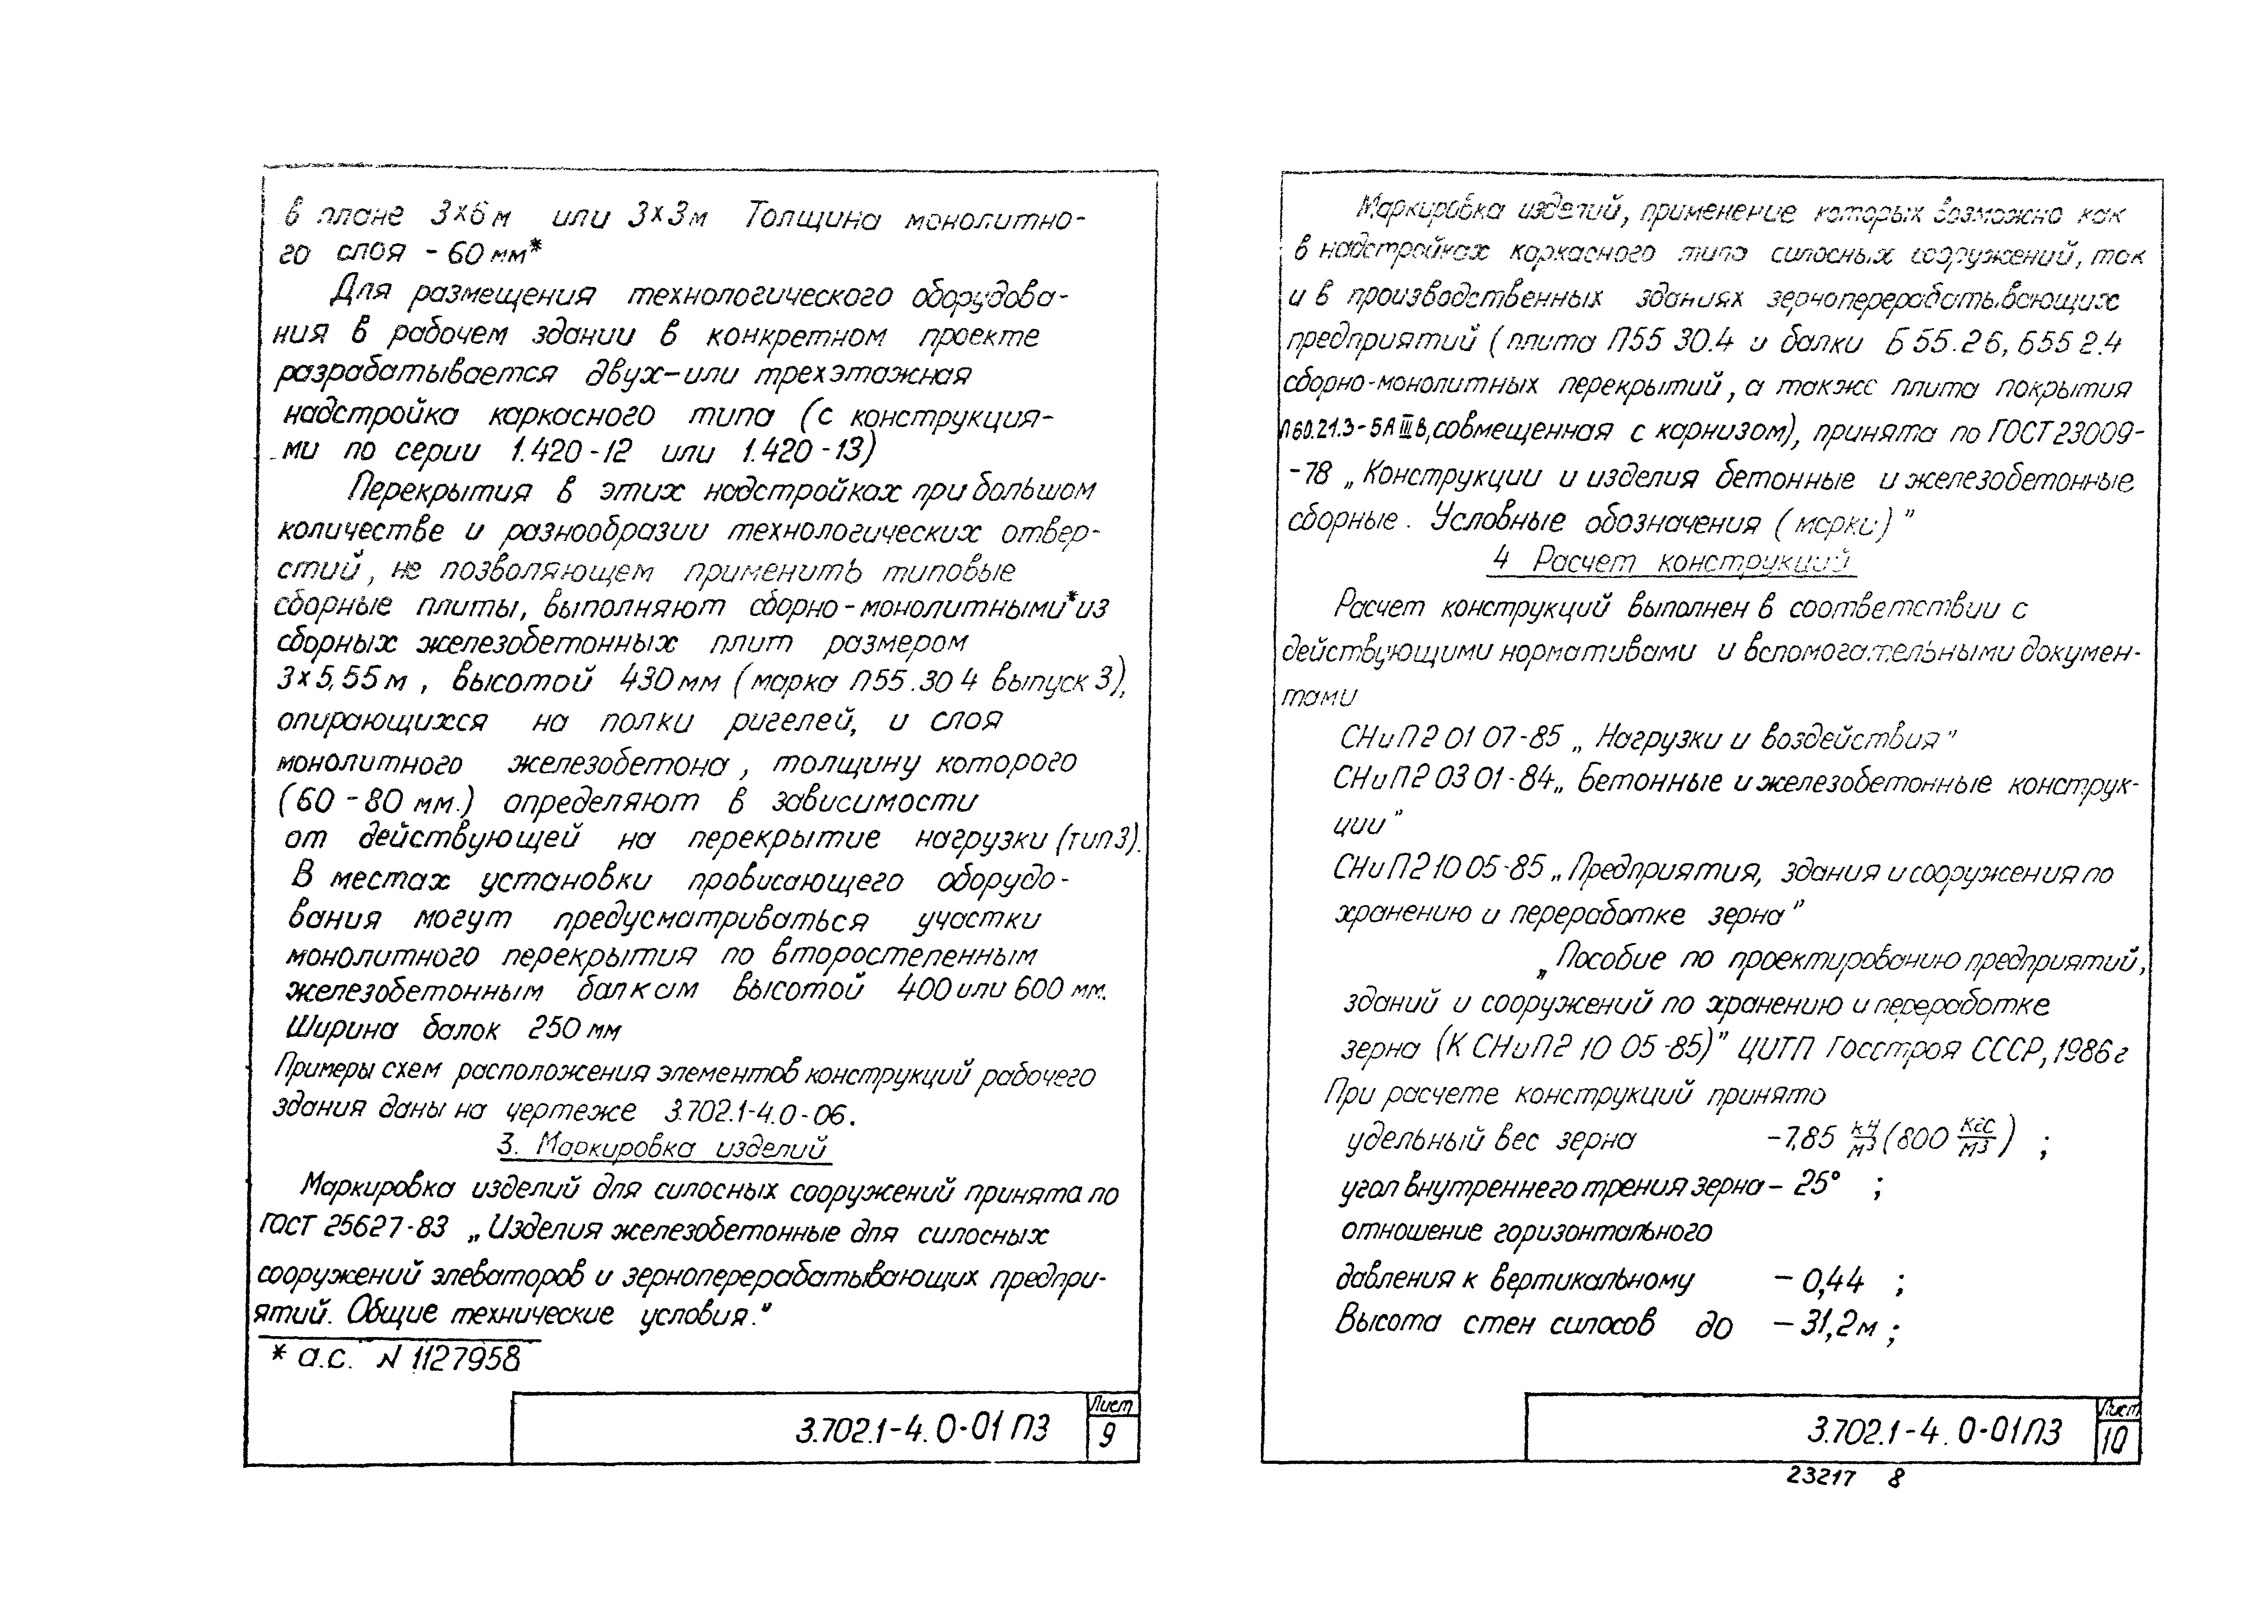 в плане 3×6 м или 3×3 м Толщина монолитно-
го слоя - 60 мм*
Для размещения технологического оборудова-
ния в рабочем здании в конкретном проекте
разрабатывается двух-или трехэтажная
надстройка каркасного типа (с конструкция-
ми по серии 1.420-12 или 1.420-13)
Перекрытия в этих надстройках при большом
количестве и разнообразии технологических отвер-
стий, не позволяющем применить типовые
сборные плиты, выполняют сборно-монолитными* из
сборных железобетонных плит размером
3×5,55 м, высотой 430 мм (марка П55.30 4 выпуск 3),
опирающихся на полки ригелей, и слоя
монолитного железобетона, толщину которого
(60-80 мм.) определяют в зависимости
от действующей на перекрытие нагрузки (тип 3).
В местах установки провисающего оборудо-
вания могут предусматриваться участки
монолитного перекрытия по второстепенным
железобетонным балкам высотой 400 или 600 мм.
Ширина балок 250 мм
Примеры схем расположения элементов конструкций рабочего
здания даны на чертеже 3.702.1-4.0-06.
3. Маркировка изделий
Маркировка изделий для силосных сооружений принята по
ГОСТ 25627-83 „Изделия железобетонные для силосных
сооружений элеваторов и зерноперерабатывающих предпри-
ятий. Общие технические условия."
* а.с. N 1127958
3.702.1-4.0-01 ПЗ
Лист
9
Маркировка изделий, применение которых возможно как
в надстройках каркасного типа силосных сооружений, так
и в производственных зданиях зерноперерабатывающих
предприятий (плита П55 30.4 и балки Б 55.26, Б55 2.4
сборно-монолитных перекрытий, а также плита покрытия
П60.21.3-5АIIIВ, совмещенная с карнизом), принята по ГОСТ 23009-
-78 „Конструкции и изделия бетонные и железобетонные
сборные. Условные обозначения (марки)"
4 Расчет конструкций
Расчет конструкций выполнен в соответствии с
действующими нормативами и вспомогательными докумен-
тами
СНиП2 01 07-85 „Нагрузки и воздействия"
СНиП2 03 01-84 „Бетонные и железобетонные конструк-
ции"
СНиП2 10 05-85 „Предприятия, здания и сооружения по
хранению и переработке зерна"
„Пособие по проектированию предприятий,
зданий и сооружений по хранению и переработке
зерна (К СНиП2 10 05-85)" ЦИТП Госстроя СССР, 1986г
При расчете конструкций принято
удельный вес зерна -7,85 кН/м3 (800 кгс/м3) ;
угол внутреннего трения зерна - 25° ;
отношение горизонтального
давления к вертикальному - 0,44 ;
Высота стен силосов до - 31,2 м ;
3.702.1-4.0-01 ПЗ
Лист
10
23217 8